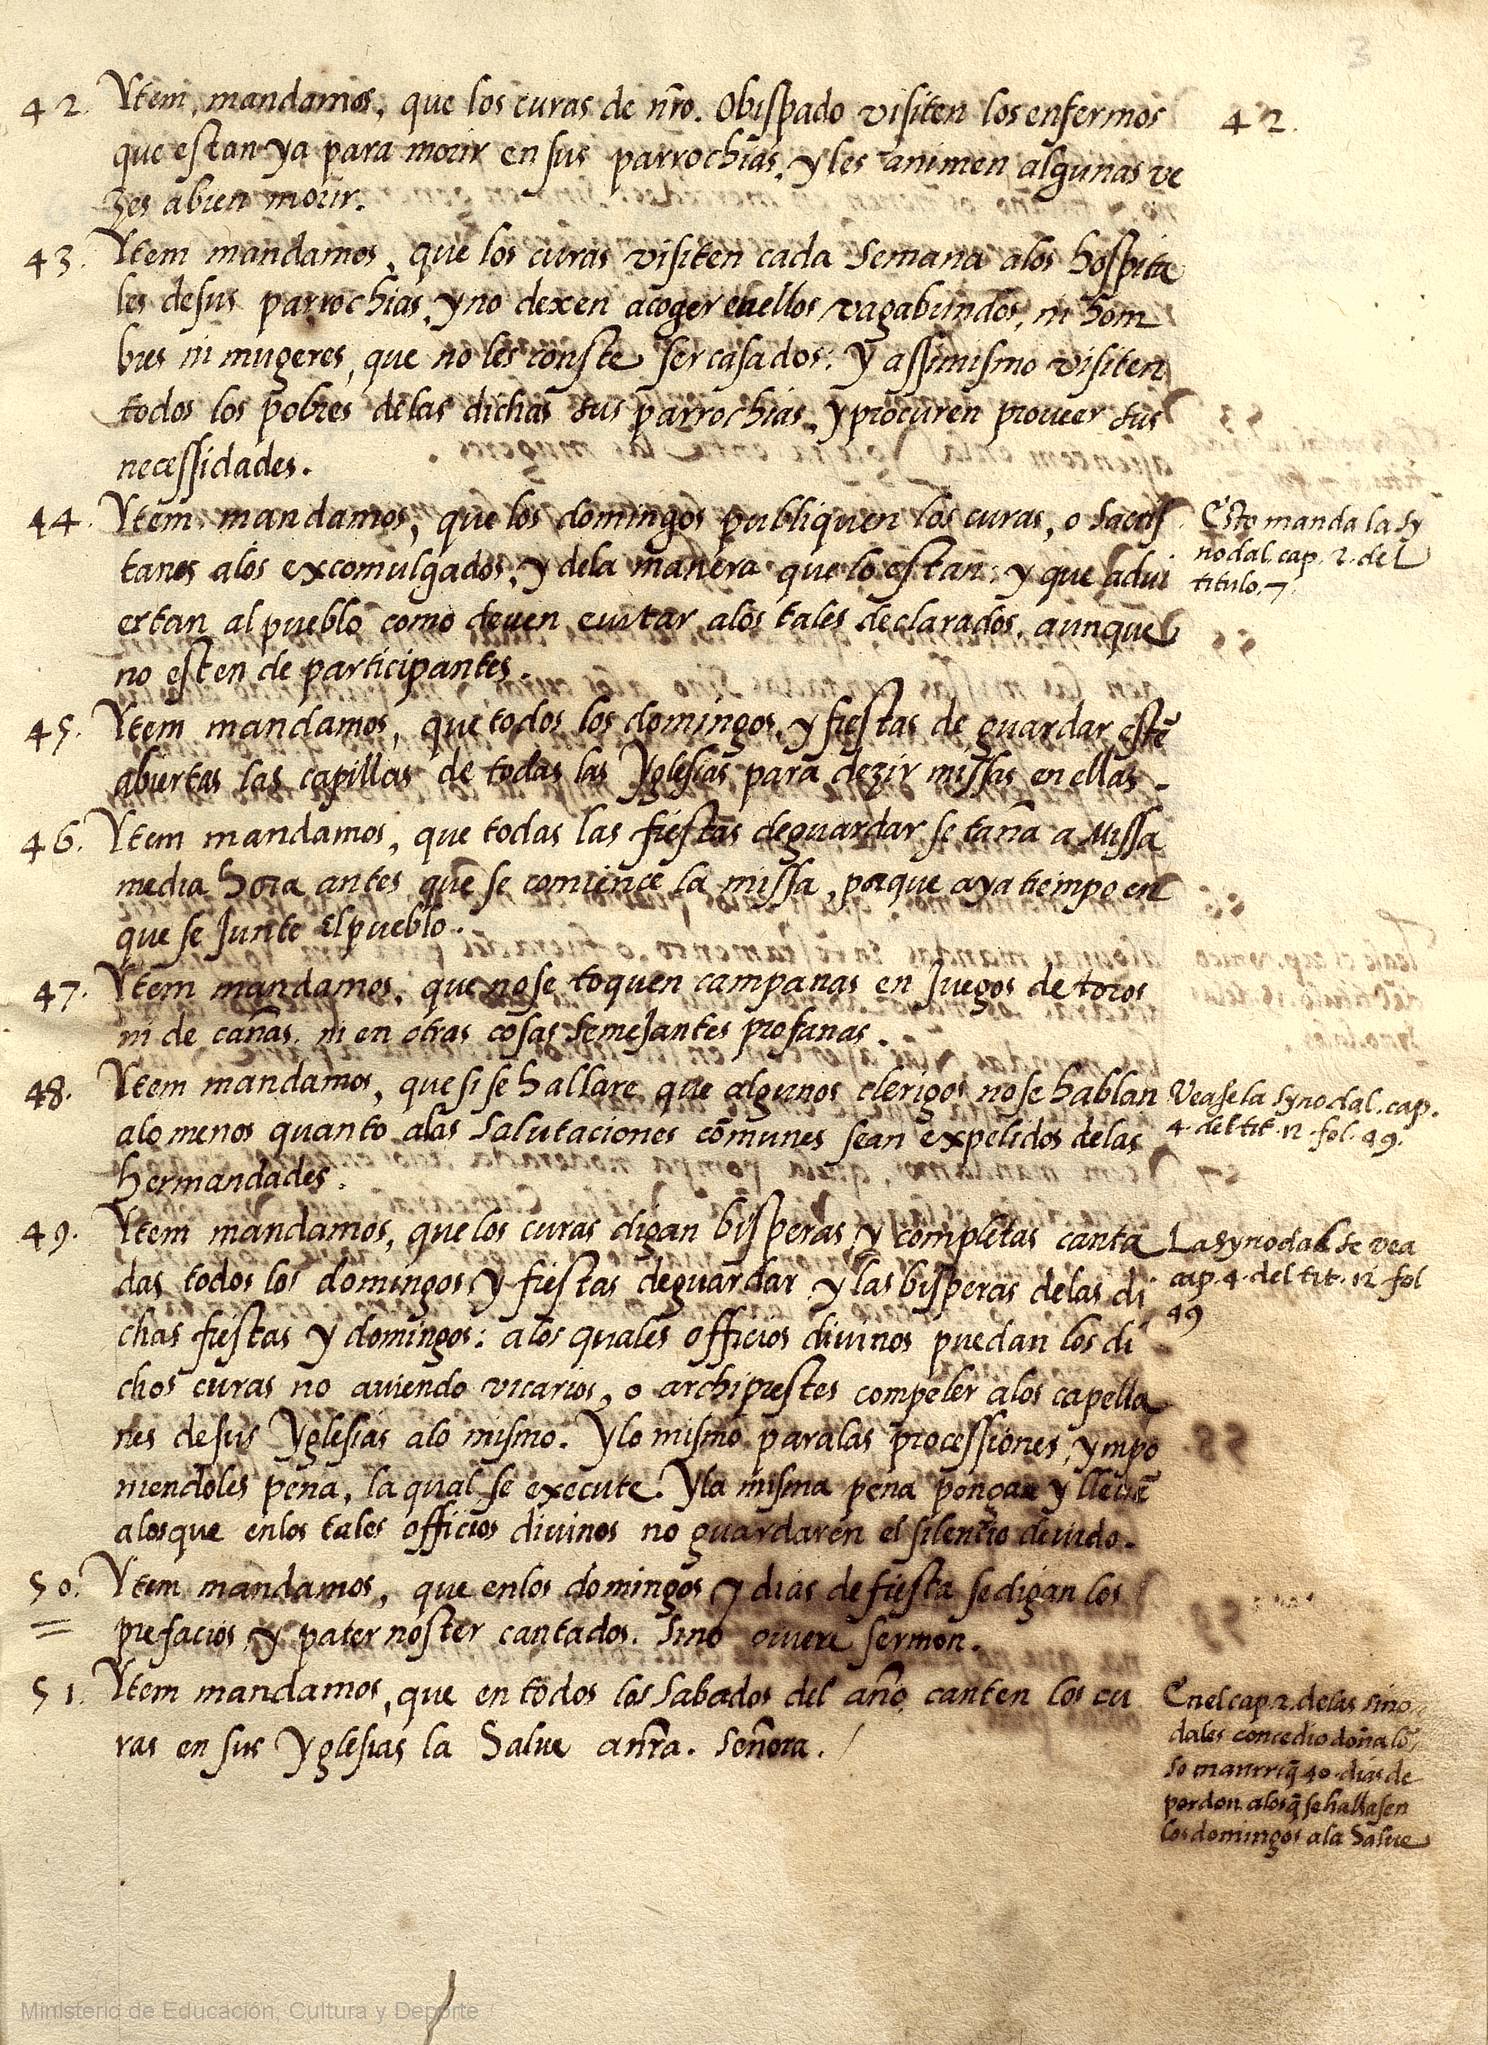 3
42. Ytem, mandamos, que los curas de nr̃o. Obispado visiten los enfermos
42.
que estan ya para morir en sus parrochias, y les animen algunas ve
zes a bien morir.
43. Ytem mandamos, que los curas visiten cada semana alos hospita
les de sus parrochias, y no dexen acoger enellos vagabundos, ni hom
bres ni mugeres, que no les conste ser casados: y assimismo visiten
todos los pobres delas dichas sus parrochias, y procuren proueer sus
necessidades.
44. Ytem mandamos, que los domingos publiquen los curas, o sacris
tanes alos excomulgados, y dela manera que lo estan: y que adui
ertan al pueblo como deuen euitar alos tales declarados, aunque
no esten de participantes.
Esto manda la sy
nodal cap. 2. del
titulo. 7.
45. Ytem mandamos, que todos los domingos, y fiestas de guardar estẽ
abiertas las capillas de todas las Yglesias para dezir missas en ellas.
46. Ytem mandamos, que todas las fiestas deguardar se taña a Missa
media hora antes que se comience la missa, porque aya tiempo en
que se Junte el pueblo.
47. Ytem mandamos, que nose toquen campanas en Juegos de toros
ni de cañas, ni en otras cosas semejantes profanas.
48. Ytem mandamos, que si se hallare que algunos clerigos nose hablan
alo menos quanto alas salutaciones comunes sean expelidos delas
hermandades.
Vease la synodal. cap.
4. del tit. 12. fol. 49.
49. Ytem mandamos, que los curas digan bisperas, y completas canta
das todos los domingos y fiestas deguardar y las bisperas delas di
chas fiestas y domingos: alos quales officios diuinos puedan los di
chos curas no auiendo vicarios, o archiprestes compeler alos capella
nes de sus Yglesias alo mismo. Y lo mismo paralas processiones, ympo
niendoles pena, la qual se execute. Y la misma pena pongan y lleuẽ
alosque enlos tales officios diuinos no guardaren el silentio deuido.
La synodal se vea
cap. 4. del tit. 12. fol
49
50. Ytem mandamos, que enlos domingos y dias de fiesta se digan los
prefacios, y pater noster cantados. Sino ouiere sermon.
51. Ytem mandamos, que en todos los sabados del año canten los cu
ras en sus Yglesias la Salue a nr̃a. Señora.
En el cap. 2. delas sino
dales concedio doña lõ
so manrriq̃ 40. dias de
perdon alosq̃ se hallasen
los domingos ala Salue
Ministerio de Educación, Cultura y Deporte